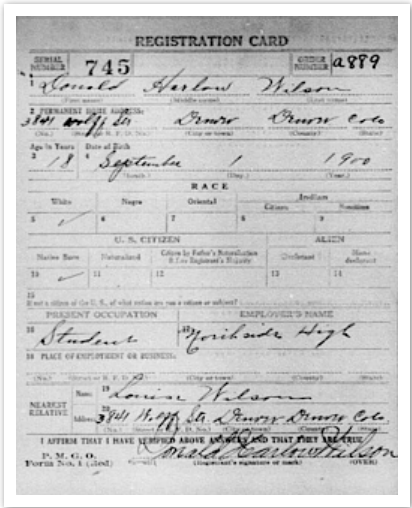 REGISTRATION CARD
SERIAL NUMBER 745 ORDER NUMBER a889
1 Donald Harlow Wilson
(First name) (Middle name) (Last name)
2 PERMANENT HOME ADDRESS:
3841 Wolff St. Denver Denver Colo
(No.) (Street or R. F. D. No.) (City or town) (County) (State)
Age in Years Date of Birth
3 18 4 September 1 1900
(Month.) (Day.) (Year.)
RACE
White Negro Oriental Indian
Citizen Noncitizen
5 ✓ 6 7 8 9
U. S. CITIZEN ALIEN
Native Born Naturalized Citizen by Father's Naturalization Before Registrant's Majority Declarant Non-declarant
10 ✓ 11 12 13 14
15
If not a citizen of the U. S., of what nation are you a citizen or subject?
PRESENT OCCUPATION EMPLOYER'S NAME
16 Student 17 Northside High
18 PLACE OF EMPLOYMENT OR BUSINESS:
(No.) (Street or R. F. D. No.) (City or town) (County) (State)
NEAREST RELATIVE
Name 19 Louise Wilson
Address 20 3841 Wolff St. Denver Denver Colo
(No.) (Street or R. F. D. No.) (City or town) (County) (State)
I AFFIRM THAT I HAVE VERIFIED ABOVE ANSWERS AND THAT THEY ARE TRUE
P. M. G. O.
Form No. 1 (Red) Donald Harlow Wilson
(Registrant's signature or mark) (OVER)